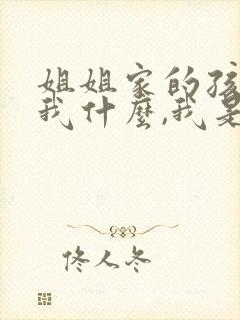 姐姐家的孩
我什麼,我是
佟人冬